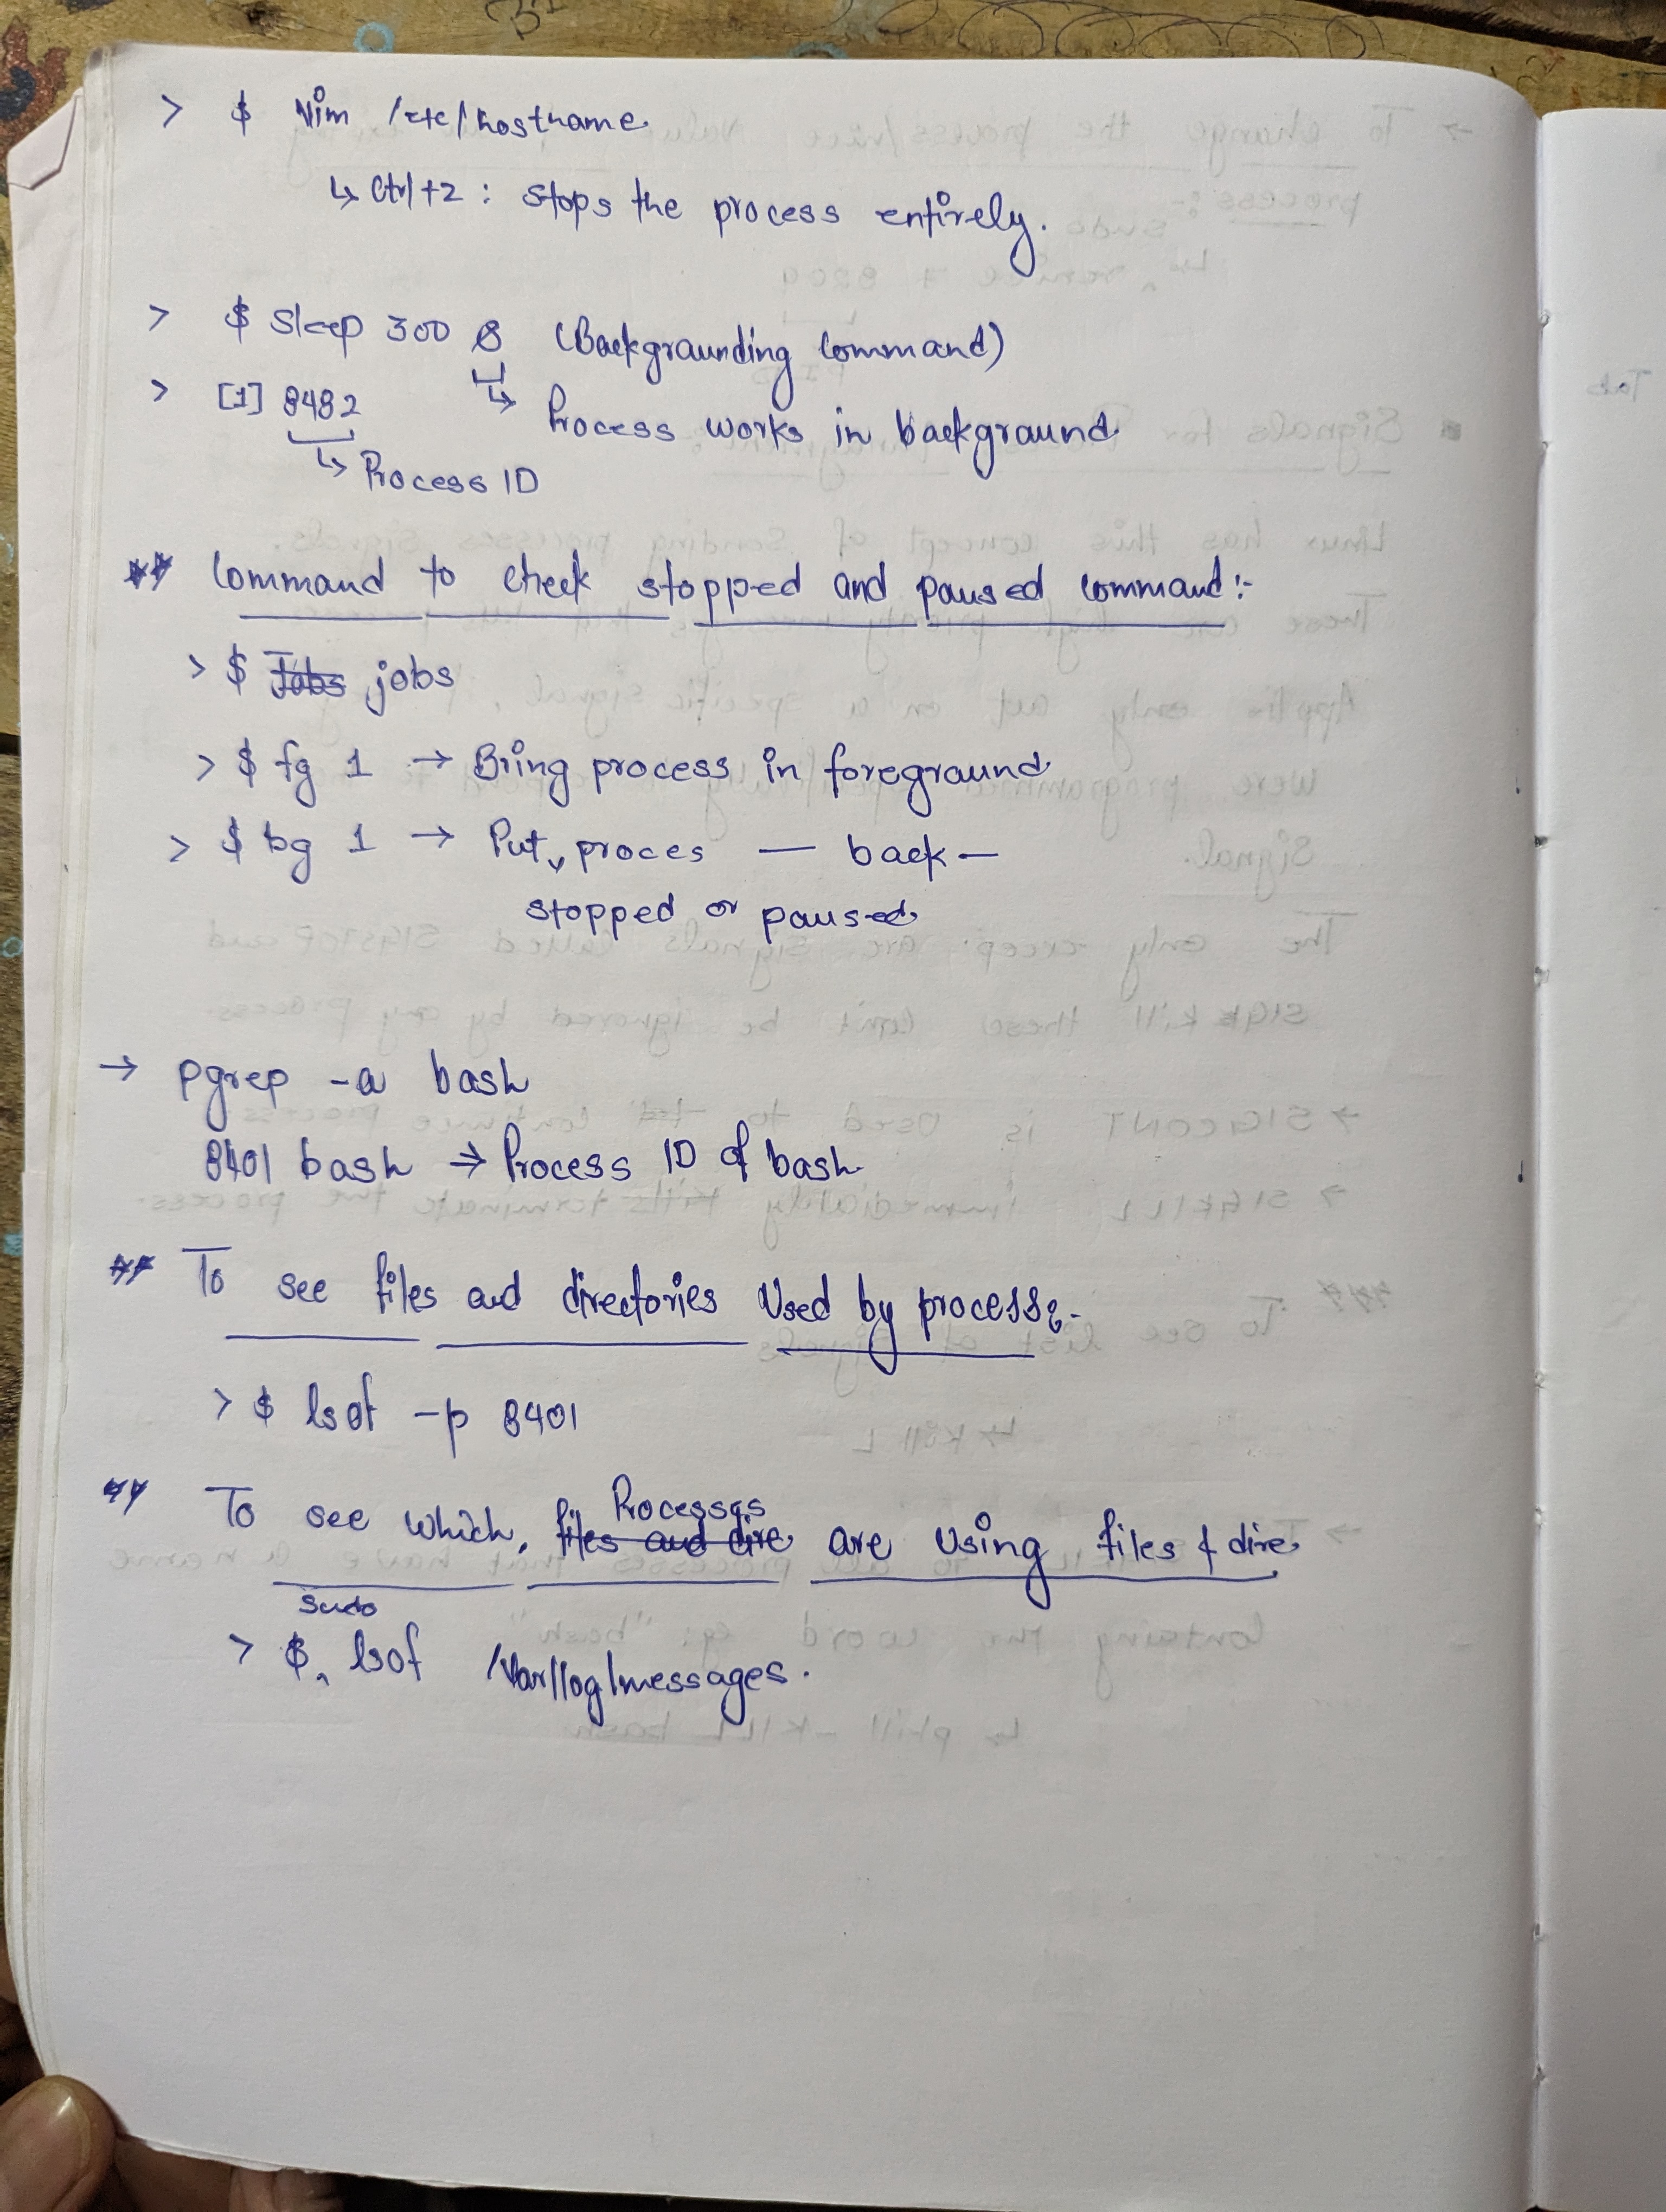 > $ Vim /etc/hostname
↳ Ctrl+z : stops the process entirely.
> $ Sleep 300 & (Backgraunding Command)
> [1] 8482 ↳ Process works in backgraund
↳ Process ID
** Command to check stopped and paused command:-
> $ Jobs jobs
> $ fg 1 → Bring process in foregraund
> $ bg 1 → Put, proces — back —
stopped or paused
→ pgrep -a bash
8401 bash → Process ID of bash
** To see files and directories Used by process:-
> $ lsof -p 8401
** To see which, files and dire Processes are Using files & dire
> $, sudo lsof /Var/log/messages.